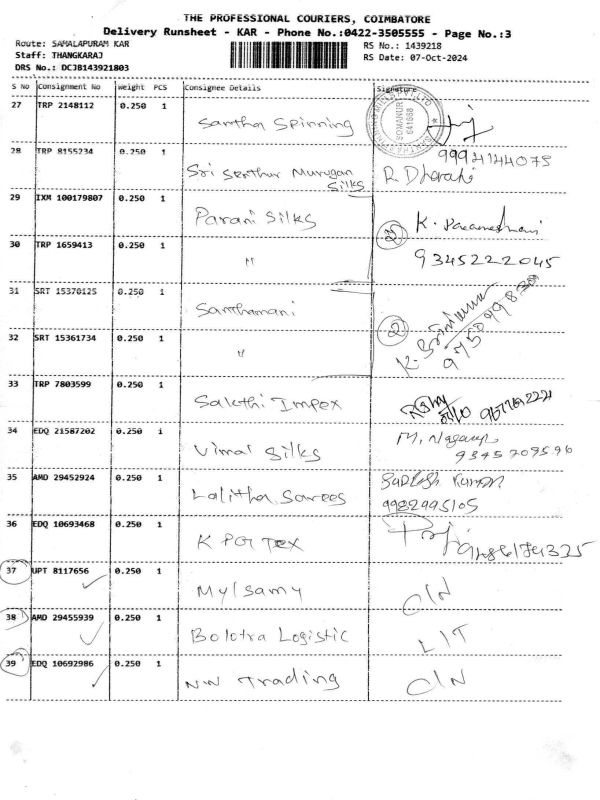 THE PROFESSIONAL COURIERS, COIMBATORE
Delivery Runsheet - KAR - Phone No.:0422-3505555 - Page No.:3
Route: SAMALAPURAM KAR
RS No.: 1439218
Staff: THANGKARAJ
RS Date: 07-Oct-2024
DRS No.: DCJB143921803
S No Consignment No Weight PCS Consignee Details Signature
27 TRP 2148112 0.250 1 Santha Spinning
SOMANUR
641668
28 TRP 8155234 0.250 1 Sri Senthur Murugan Silks
9994144075
29 IXM 100179807 0.250 1 Parani Silks
30 TRP 1659413 0.250 1 " 2
9345222045
31 SRT 15370125 0.250 1 Santhamani
32 SRT 15361734 0.250 1 " 2
33 TRP 7803599 0.250 1 Sakthi Impex
34 EDQ 21587202 0.250 1 Vimal Silks
9345209596
35 AMD 29452924 0.250 1 Lalitha Sarees
9982995105
36 EDQ 10693468 0.250 1 K PGR Tex
37 UPT 8117656 0.250 1 Mylsamy CIN
38 AMD 29455939 0.250 1 Bolotra Logistic LIT
39 EDQ 10692986 0.250 1 NN Trading CIN